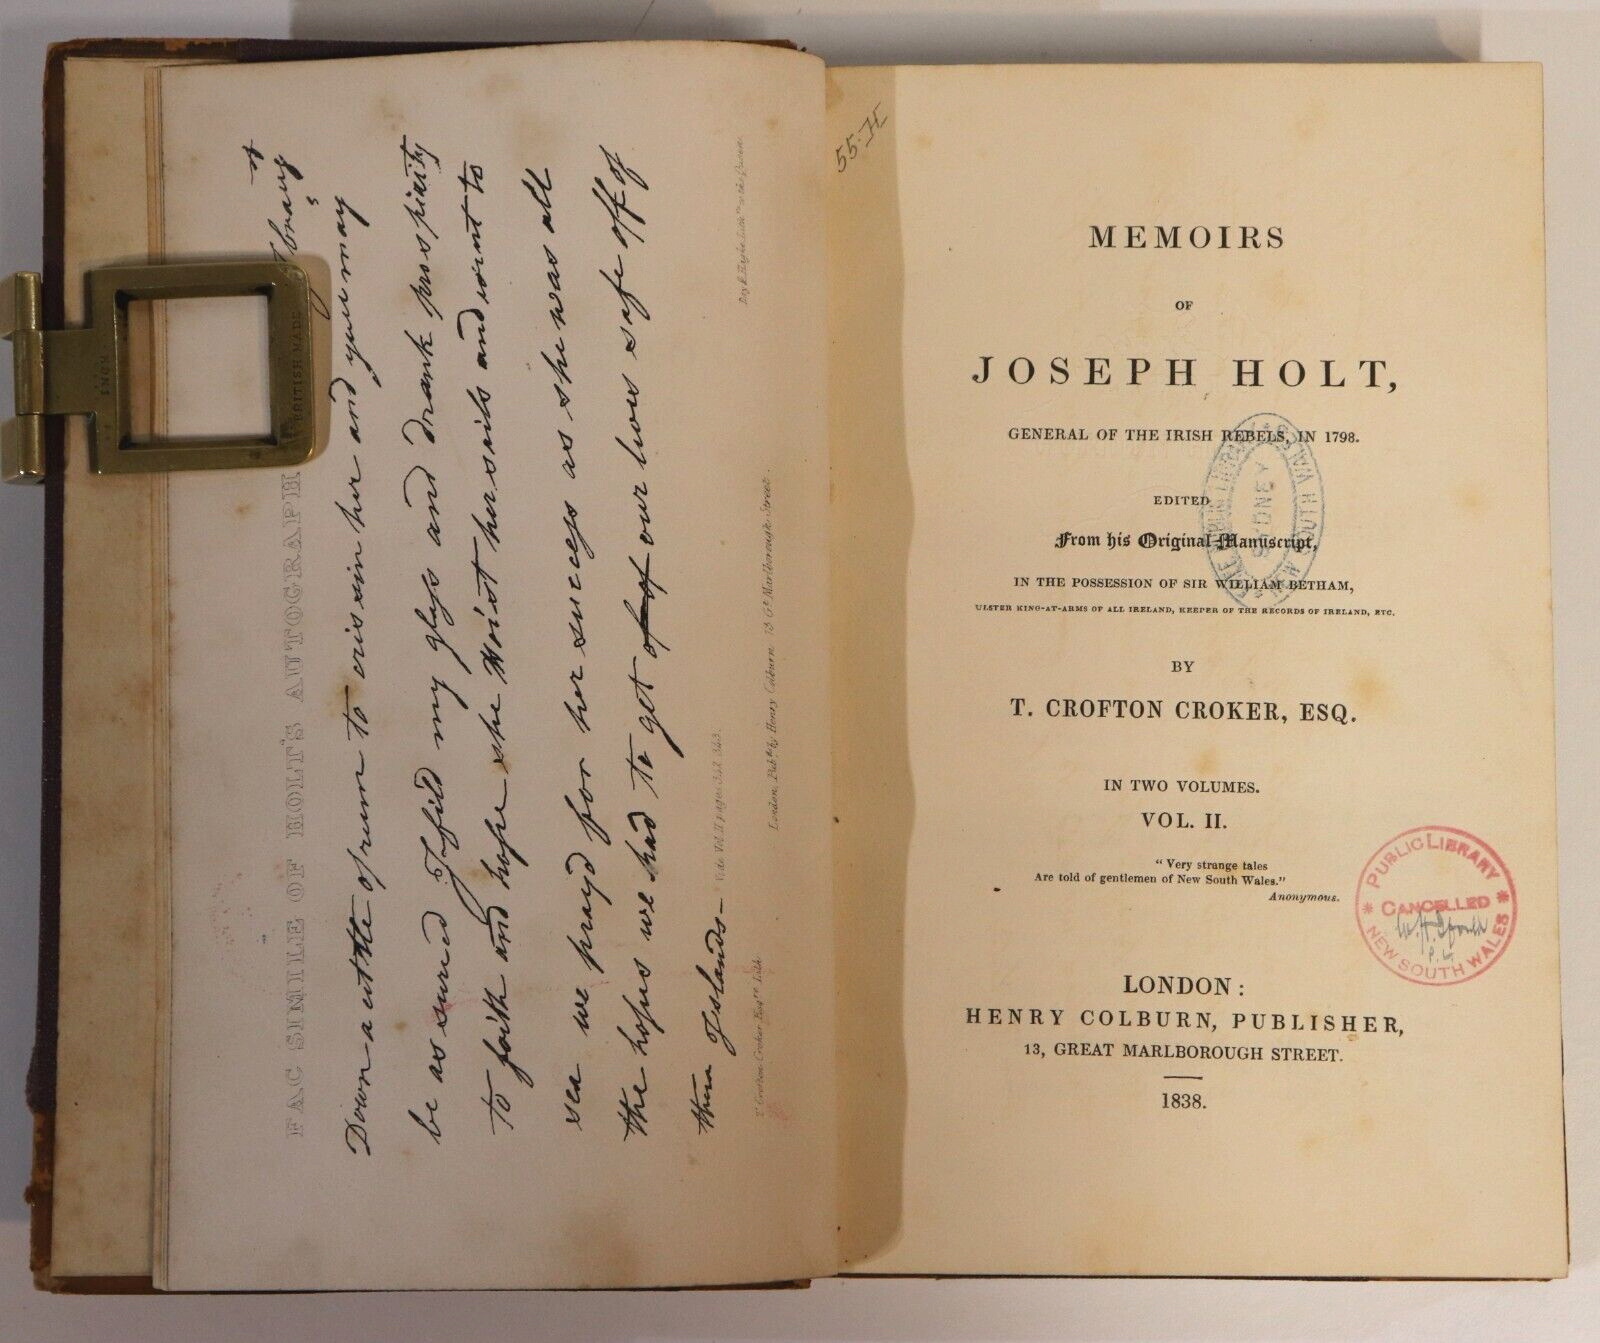 FAC SIMILE OF HOLT'S AUTOGRAPH
of
braug
Down a cittle of rum to cris ain her and your may
be as sured I fild my glass and drank prosspirity
to faith and hope she Hoist her sails and went to
sea we prayd for her success as she was all
the hopes we had to get of of our lives safe off of
them Islands—
Vide Vol. II pages 342. 343.
T. Crofton Croker Esqre. Lith.
London, Pubd. by Henry Colburn. 13 Gt. Marlborough Street.
Day & Haghe Lithrs. to the Queen.
BRITISH MADE
INCH
55.H
MEMOIRS
OF
JOSEPH HOLT,
GENERAL OF THE IRISH REBELS, IN 1798.
EDITED
From his Original Manuscript,
IN THE POSSESSION OF SIR WILLIAM BETHAM,
ULSTER KING-AT-ARMS OF ALL IRELAND, KEEPER OF THE RECORDS OF IRELAND, ETC.
BY
T. CROFTON CROKER, ESQ.
IN TWO VOLUMES.
VOL. II.
"Very strange tales
Are told of gentlemen of New South Wales."
Anonymous.
LONDON:
HENRY COLBURN, PUBLISHER,
13, GREAT MARLBOROUGH STREET.
1838.
SYDNEY
NEW SOUTH WALES
PUBLIC LIBRARY
CANCELLED
NEW SOUTH WALES